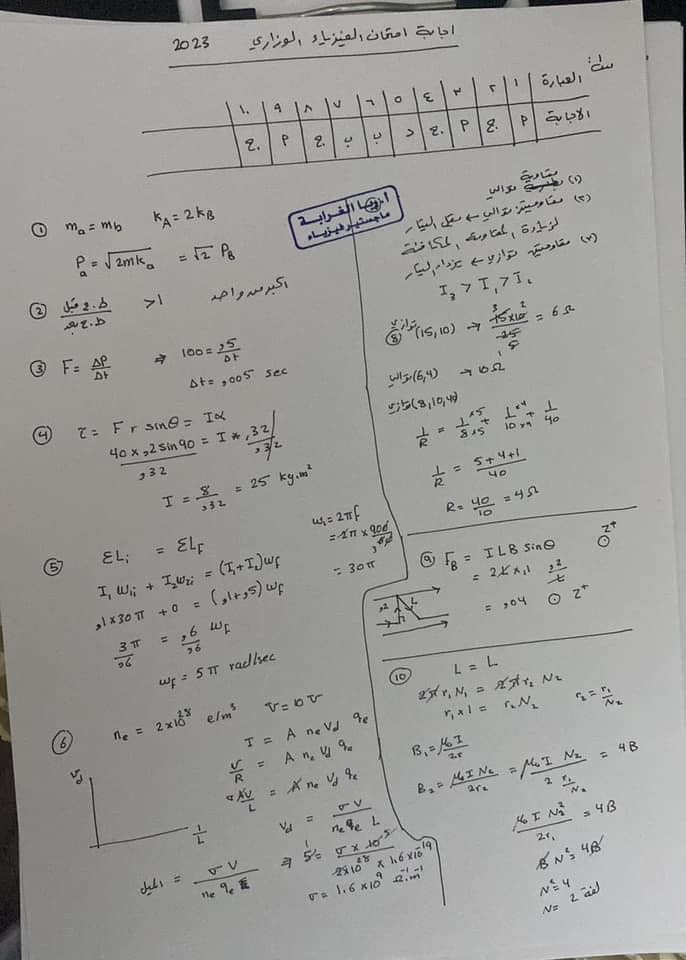 اجابة امتحان الفيزياء الوزاري 2023
العبارة ١ ٢ ٣ ٤ ٥ ٦ ٧ ٨ ٩ ١٠
الاجابة م ج م ج د ب ب ج م ج
① ma = mb KA = 2KB
Pa = √2mka = √2 PB
② ط.ح قبل / ط.ح بعد > 1 اكبر من واحد
③ F = ΔP/Δt ⇒ 100 = ,5/Δt
Δt = ,005 sec
④ τ = F r sinθ = Iα
40 × ,2 sin 90 / ,32 = I * ,32 / ,32
I = 8/,32 = 25 kg.m²
⑤ ΣLi = ΣLf
I1 ω1i + I2 ω2i = (I1 + I2) ωf
,1 × 30π + 0 = (,1 + ,5) ωf
3π/,6 = ,6/,6 ωf
ωf = 5π rad/sec
ω1 = 2πf
= 30π
⑥ ne = 2×10²⁸ e/m³ V = 10 V
I = A ne Vd qe
V/R = A ne Vd qe
σAV/L = A ne Vd qe
Vd = σV / ne qe L
Vd
1/L
الميل = σV / ne qe ⇒
σ = 1.6 × 10⁹ Ω⁻¹.m⁻¹
ماجستير فيزياء
(١) مقاومة توالي
(٢) مقاومتين توالي ← يقل التيار
لزيادة المقاومة المكافئة
(٧) مقاومتين توازي ← يزداد التيار
⑧ توازي (15,10) → 15×10/25 = 6 Ω
توالي (6,4) → 10 Ω
توازي (8,10,40)
1/R = 1×5/8×5 + 1×4/10×4 + 1/40
1/R = 5+4+1/40
R = 40/10 = 4 Ω
⑨ FB = I L B sinθ
= ,04 ⊙ Z⁺
⊙ Z⁺
,2 L
⑩ L = L
2π r1 N1 = 2π r2 N2
r1 × 1 = r2 N2 r2 = r1/N2
B1 = μ0 I / 2r
B2 = μ0 I N2 / 2r2 = μ0 I N2 / 2 r1/N2 = 4B
μ0 I N2² / 2r1 = 4B
B N² = 4B
N² = 4
N = 2 لفة